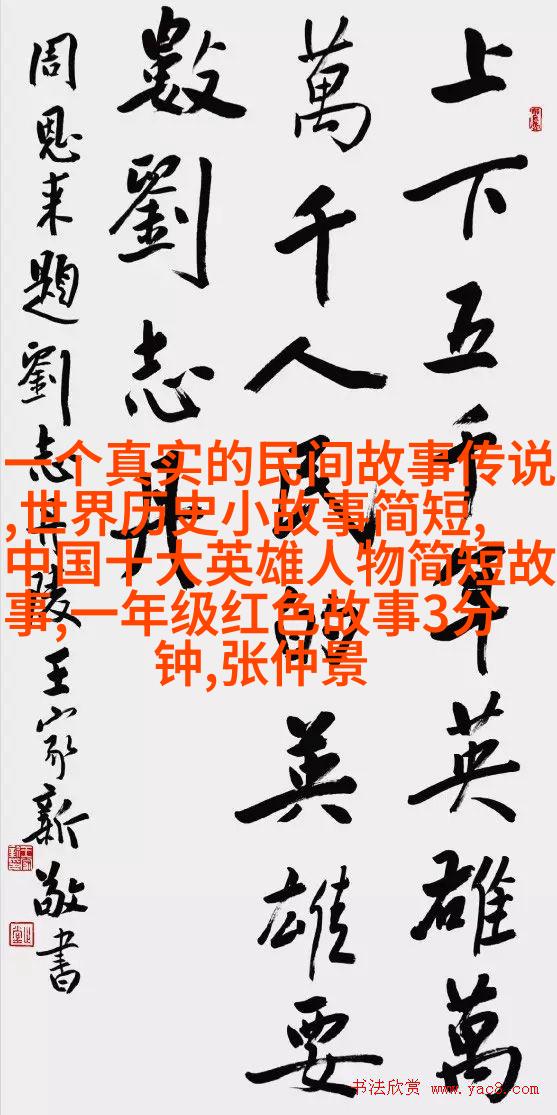 上下五千年英雄萬
萬千人民的英雄要
數劉志丹
周恩来題劉志丹陵王家新敬書
一个真实的民间故事传说
,世界历史小故事简短,
中国十大英雄人物简短故
事,一年级红色故事3分
钟,张仲景
书法欣赏 www.yac8.com